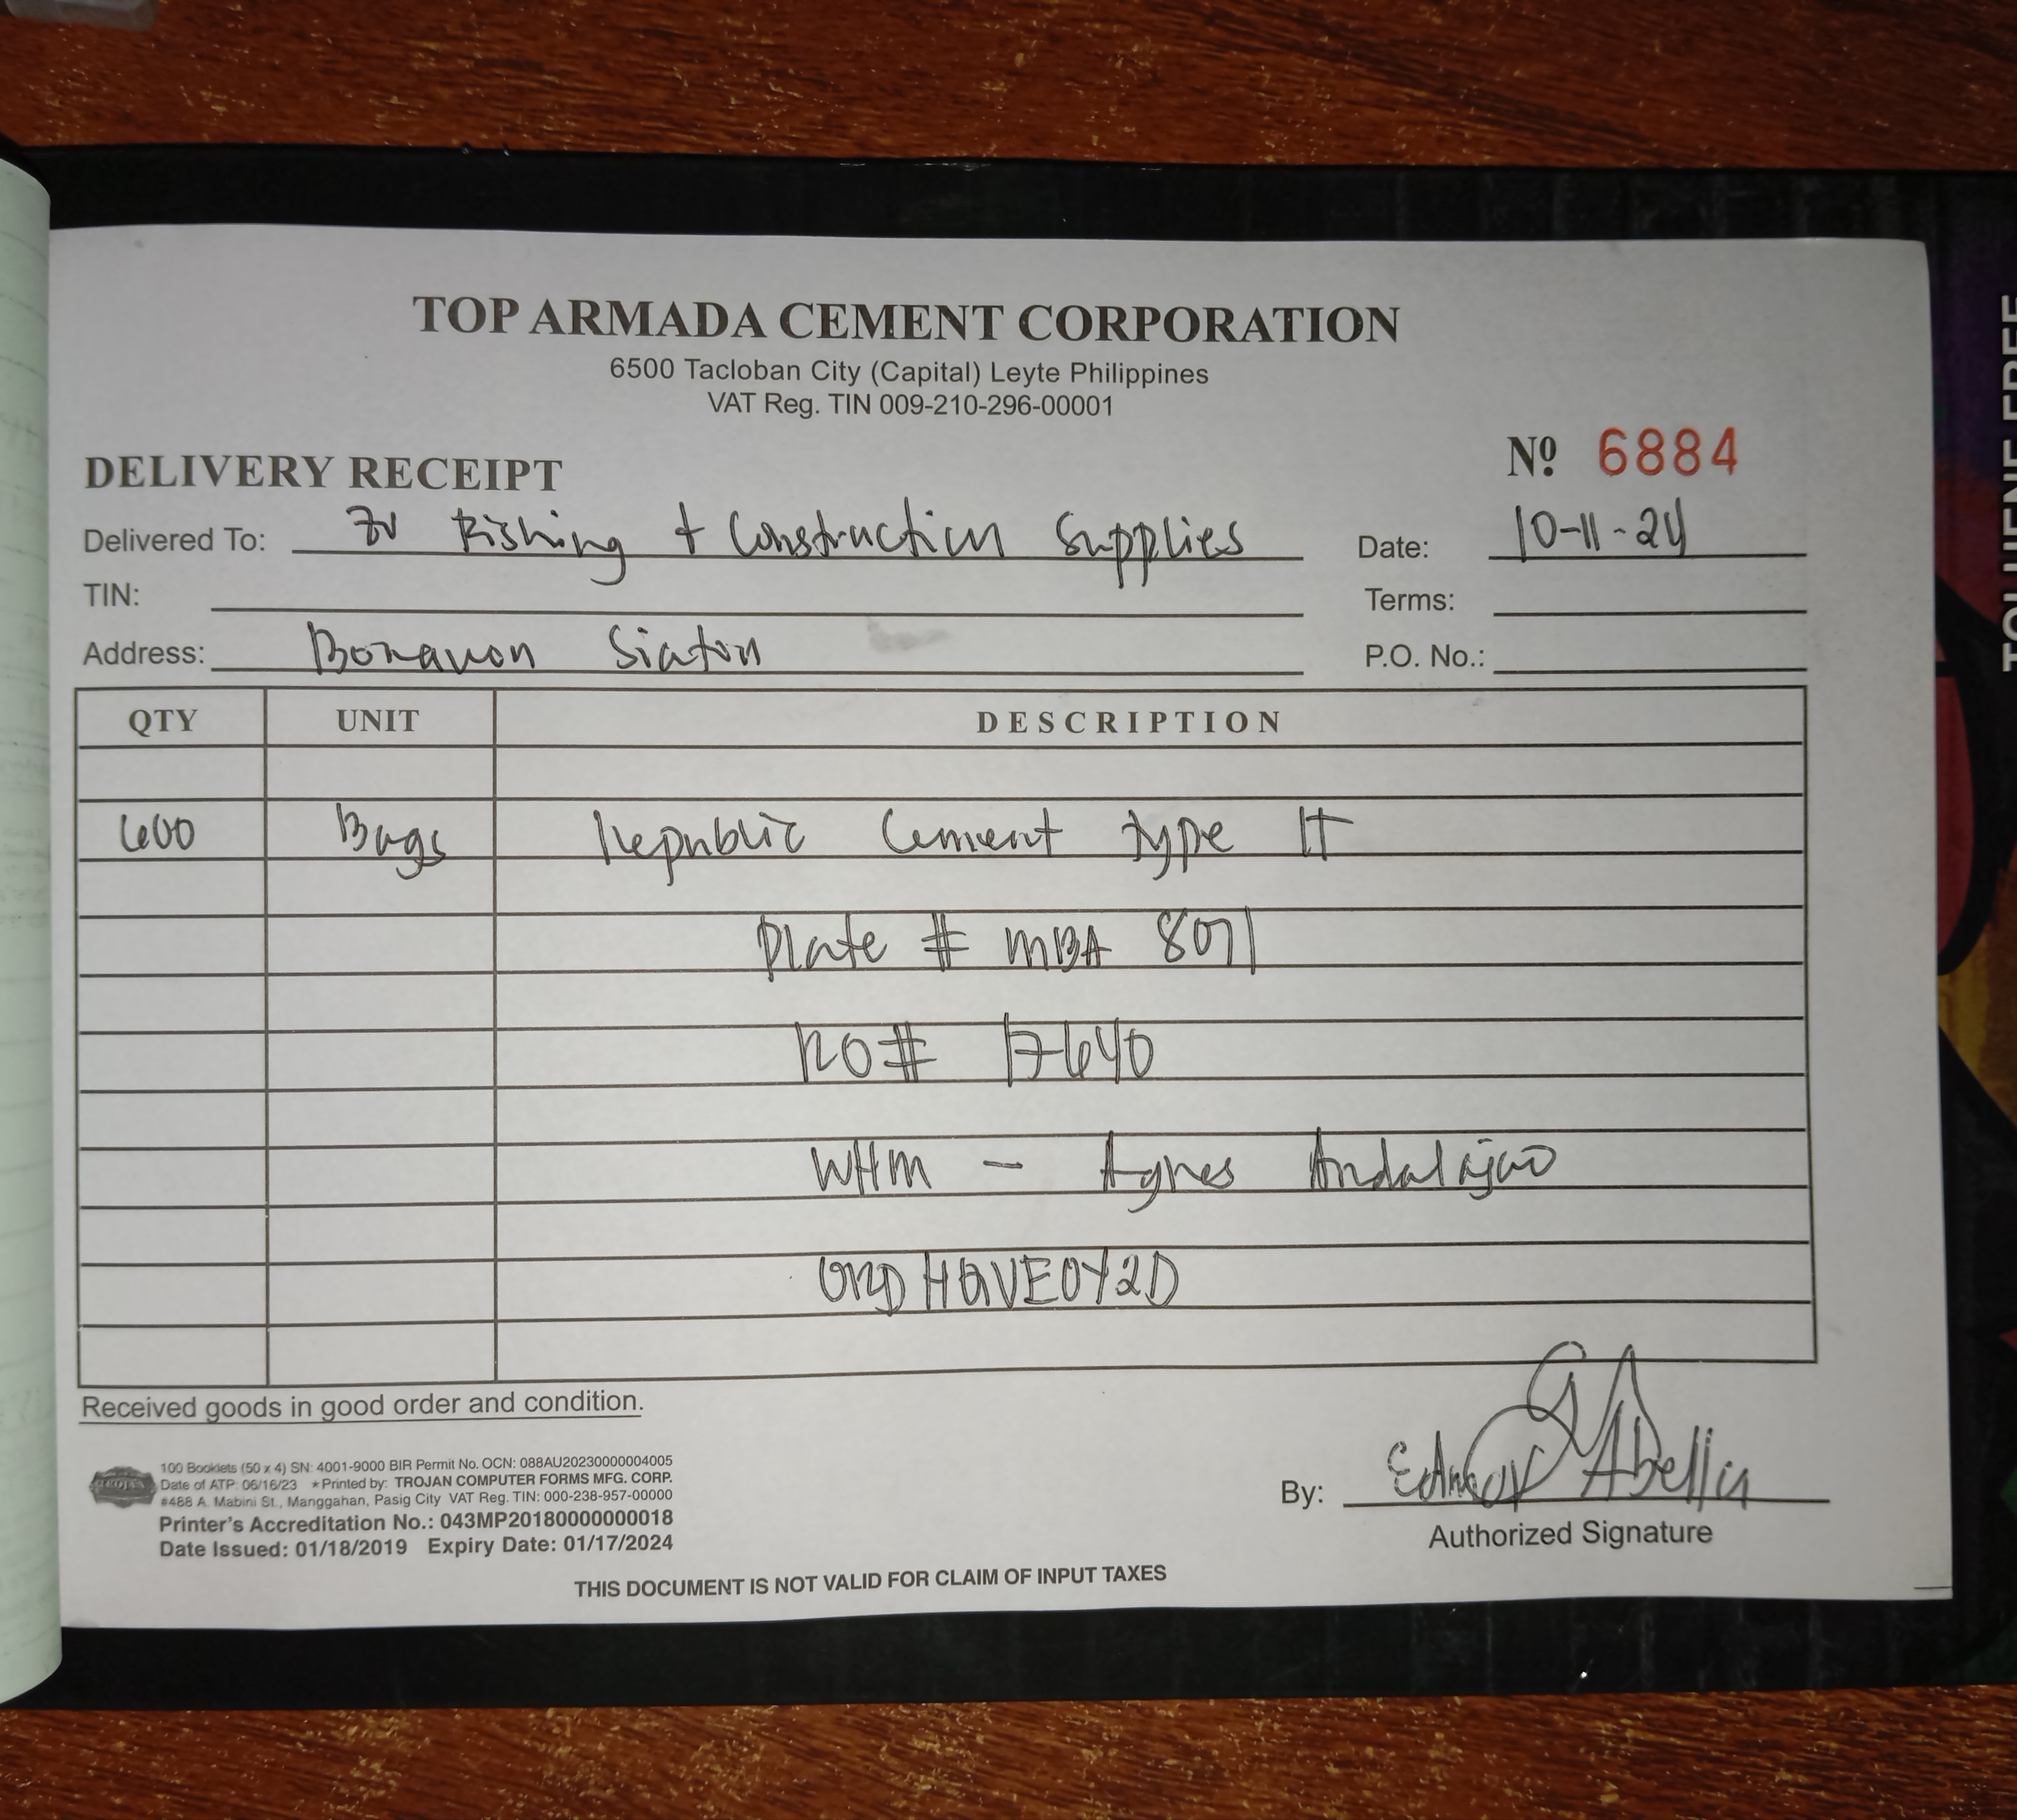 TOP ARMADA CEMENT CORPORATION
6500 Tacloban City (Capital) Leyte Philippines
VAT Reg. TIN 009-210-296-00001
DELIVERY RECEIPT
Nº 6884
Delivered To: Fishing + Construction Supplies
Date: 10-11-24
TIN:
Terms:
Address: Bonawon Siaton
P.O. No.:
QTY UNIT DESCRIPTION
600 Bags Republic Cement type
Plate # MBA 8071
RO# 17640
WHM - Agnes
Received goods in good order and condition.
100 Booklets (50 x 4) SN: 4001-9000 BIR Permit No. OCN: 088AU20230000004005
Date of ATP: 06/16/23 ★Printed by: TROJAN COMPUTER FORMS MFG. CORP.
#488 A. Mabini St., Manggahan, Pasig City VAT Reg. TIN: 000-238-957-00000
Printer's Accreditation No.: 043MP20180000000018
Date Issued: 01/18/2019 Expiry Date: 01/17/2024
By: Abella
Authorized Signature
THIS DOCUMENT IS NOT VALID FOR CLAIM OF INPUT TAXES
TOLUENE FREE